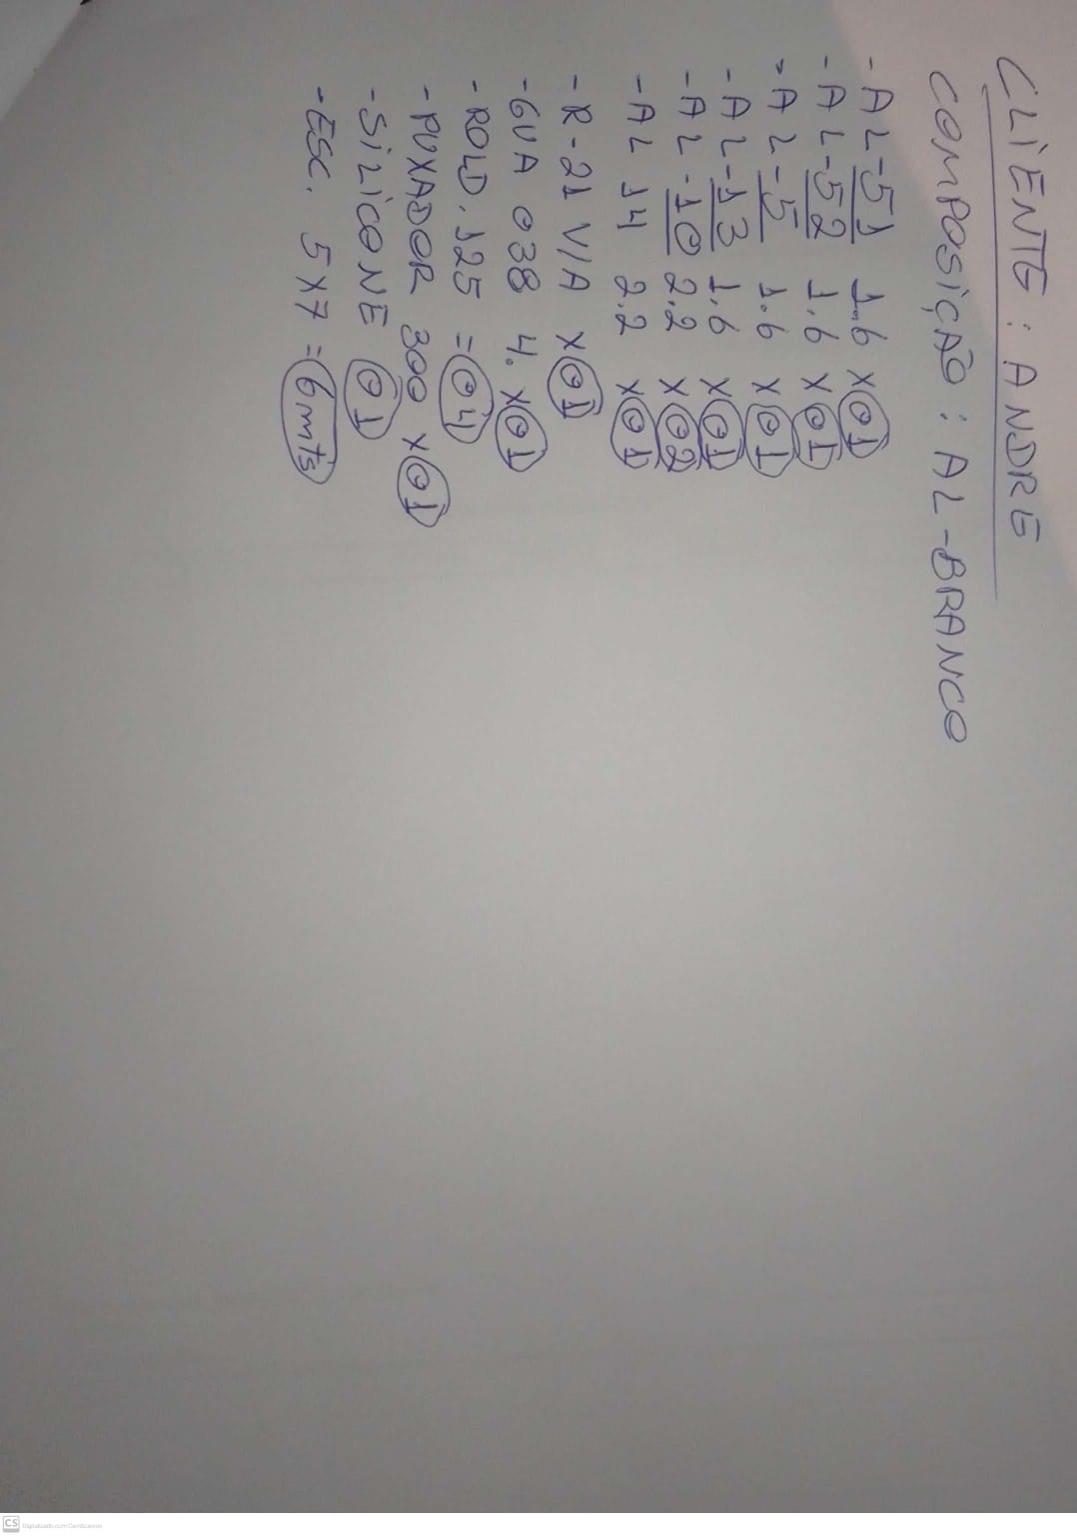 CLiENTE : ANDRE
COMPOSiÇÃO : AL-BRANCO
- AL-51 1.6 x 01
- AL-52 1.6 x 01
- AL-5 1.6 x 01
- AL-13 1.6 x 01
- AL-10 2.2 x 02
- AL 14 2.2 x 01
- R-21 V/A x 01
- GUA 038 4. x 01
- ROLD.125 = 04
- PUXADOR 300 x 01
- SiLiCONE 01
- ESC. 5x7 = 6mts
CS Digitalizado com CamScanner